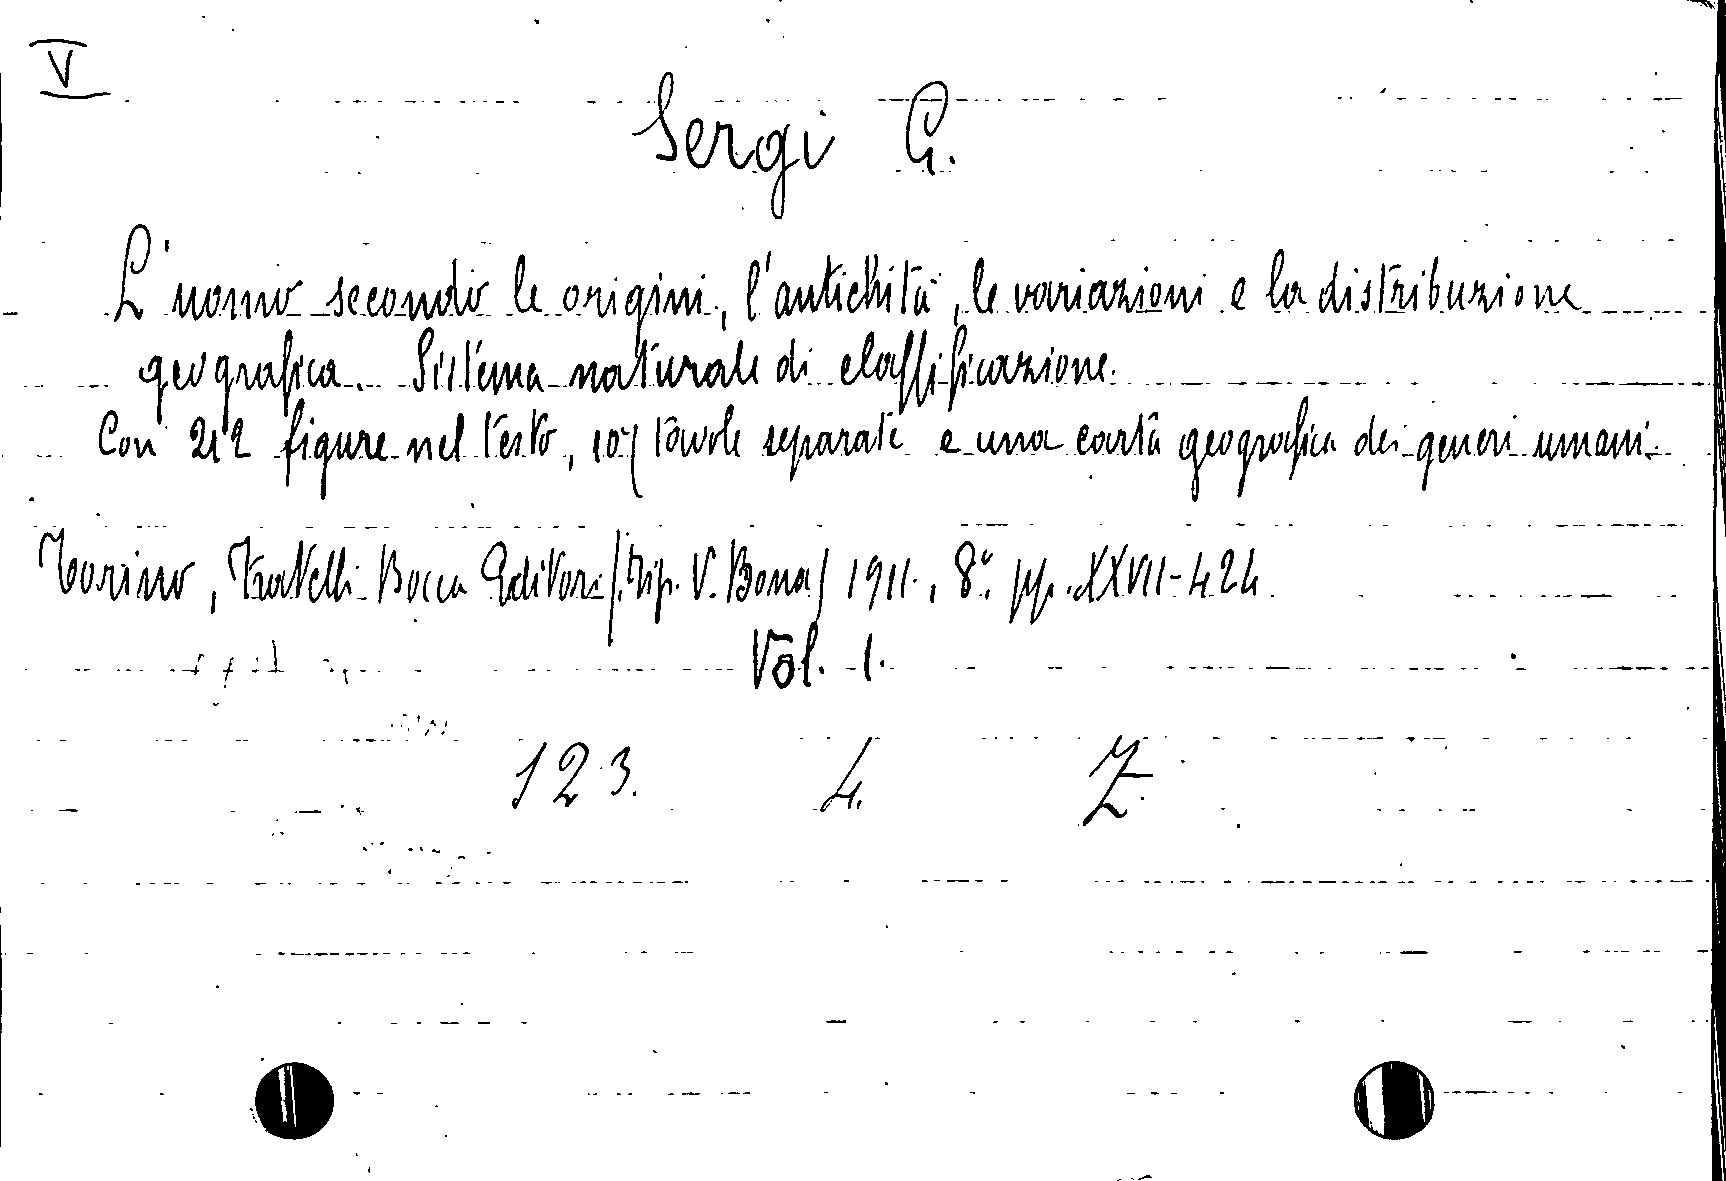 V
Sergi G.
L'uomo secondo le origini, l'antichità, le variazioni e la distribuzione
geografica. Sistema naturale di classificazione.
Con 212 figure nel testo, 107 tavole separate e una carta geografica dei generi umani.
Torino, Fratelli Bocca Editori (Tip. V. Bona) 1911., 8° pp. XXVII-424
Vol. 1.
123. 4. Z.